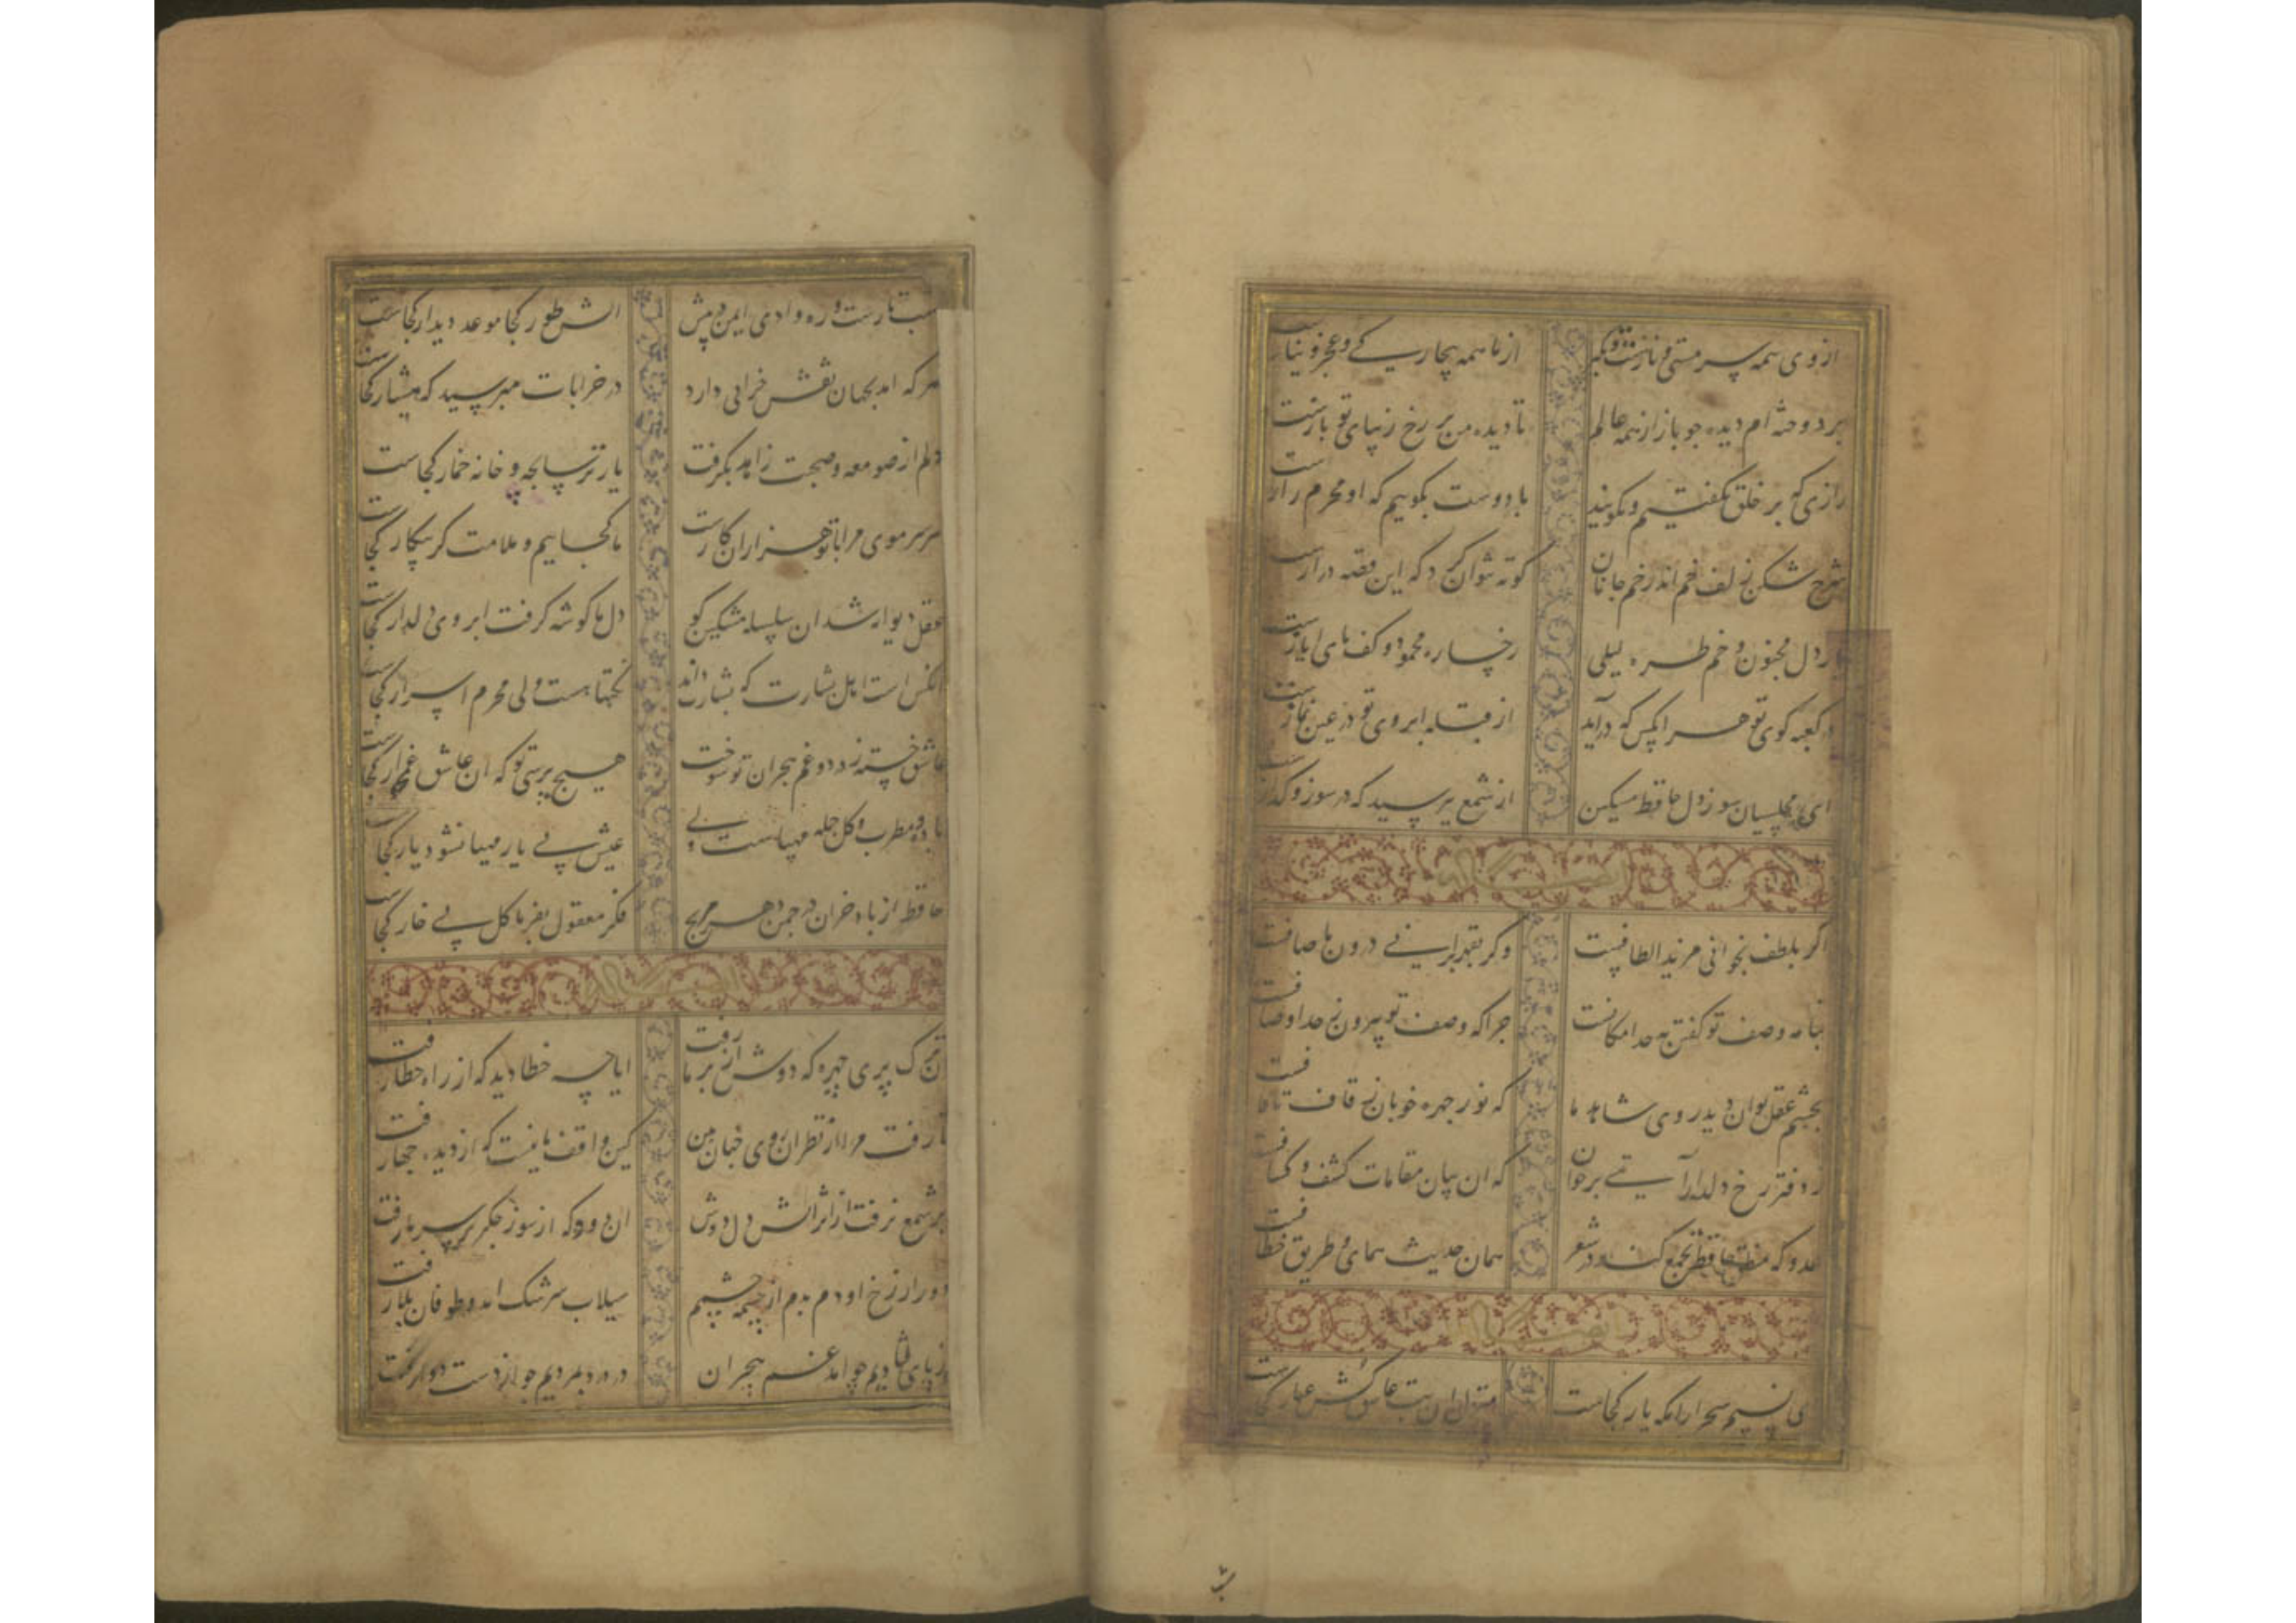 از وی همه سر مستی و نازست و تکبر از ما همه بیچارگی و عجز و نیازست
بردوخته‌ام دیده چو باز از همه عالم تا دیده من بر رخ زیبای تو بازست
رازی که بر خلق نگفتیم و نگویند با دوست بگوییم که او محرم رازست
شرح شکن زلف خم اندر خم جانان کوته نتوان کرد که این قصه درازست
بار دل مجنون و خم طره لیلی رخساره محمود و کف پای ایازست
در کعبه کوی تو هر آنکس که درآید از قبله ابروی تو در عین نمازست
ای مجلسیان سوز دل حافظ مسکین از شمع بپرسید که در سوز و گدازست
اگر بلطف بخوانی مزید الطافست وگر بقهر برانی درون ما صافست
بنامه وصف تو گفتن نه حد امکانست چرا که وصف تو بیرون ز حد اوصافست
بچشم عقل توان دید روی شاهد ما که نور چهره خوبان ز قاف تا قافست
ز دفتر رخ دلدار آیتی برخوان که آن بیان مقامات کشف و کشافست
عدو که منطق حافظ طمع کند در شعر همان حدیث همای و طریق خطافست
ای نسیم سحر آرامگه یار کجاست منزل آن بت عاشق کش عیار کجاست
شب
شب تارست و ره وادی ایمن در پیش آتش طور کجا موعد دیدار کجاست
هر که آمد بجهان نقش خرابی دارد در خرابات مپرسید که هشیار کجاست
دلم از صومعه و صحبت زاهد بگرفت یار ترسابچه و خانه خمار کجاست
هر سر موی مرا با تو هزاران کارست ما کجاییم و ملامت گر بیکار کجاست
عقل دیوانه شد آن سلسله مشکین کو دل ما گوشه گرفت ابروی دلدار کجاست
آنکس است اهل بشارت که بشارت داند نکتها هست ولی محرم اسرار کجاست
عاشق خسته ز درد و غم هجران تو سوخت هیچ پرسی تو که آن عاشق غمخوار کجاست
باده و مطرب و گل جمله مهیاست ولی عیش بی یار مهیا نشود یار کجاست
حافظ از باد خزان در چمن دهر مرنج فکر معقول بفرما گل بی خار کجاست
آن ترک پری چهره که دوش از بر ما رفت آیا چه خطا دید که از راه خطا رفت
تا رفت مرا از نظر آن روی جهان بین کس واقف ما نیست که از دیده چها رفت
بر شمع نرفت از اثر آتش دل دوش آن دود که از سوز جگر بر سر ما رفت
دور از رخ او دم بدم از چشمه چشمم سیلاب سرشک آمد و طوفان بلا رفت
از پای فتادیم چو آمد غم هجران در درد بمردیم چو از دست دوا رفت